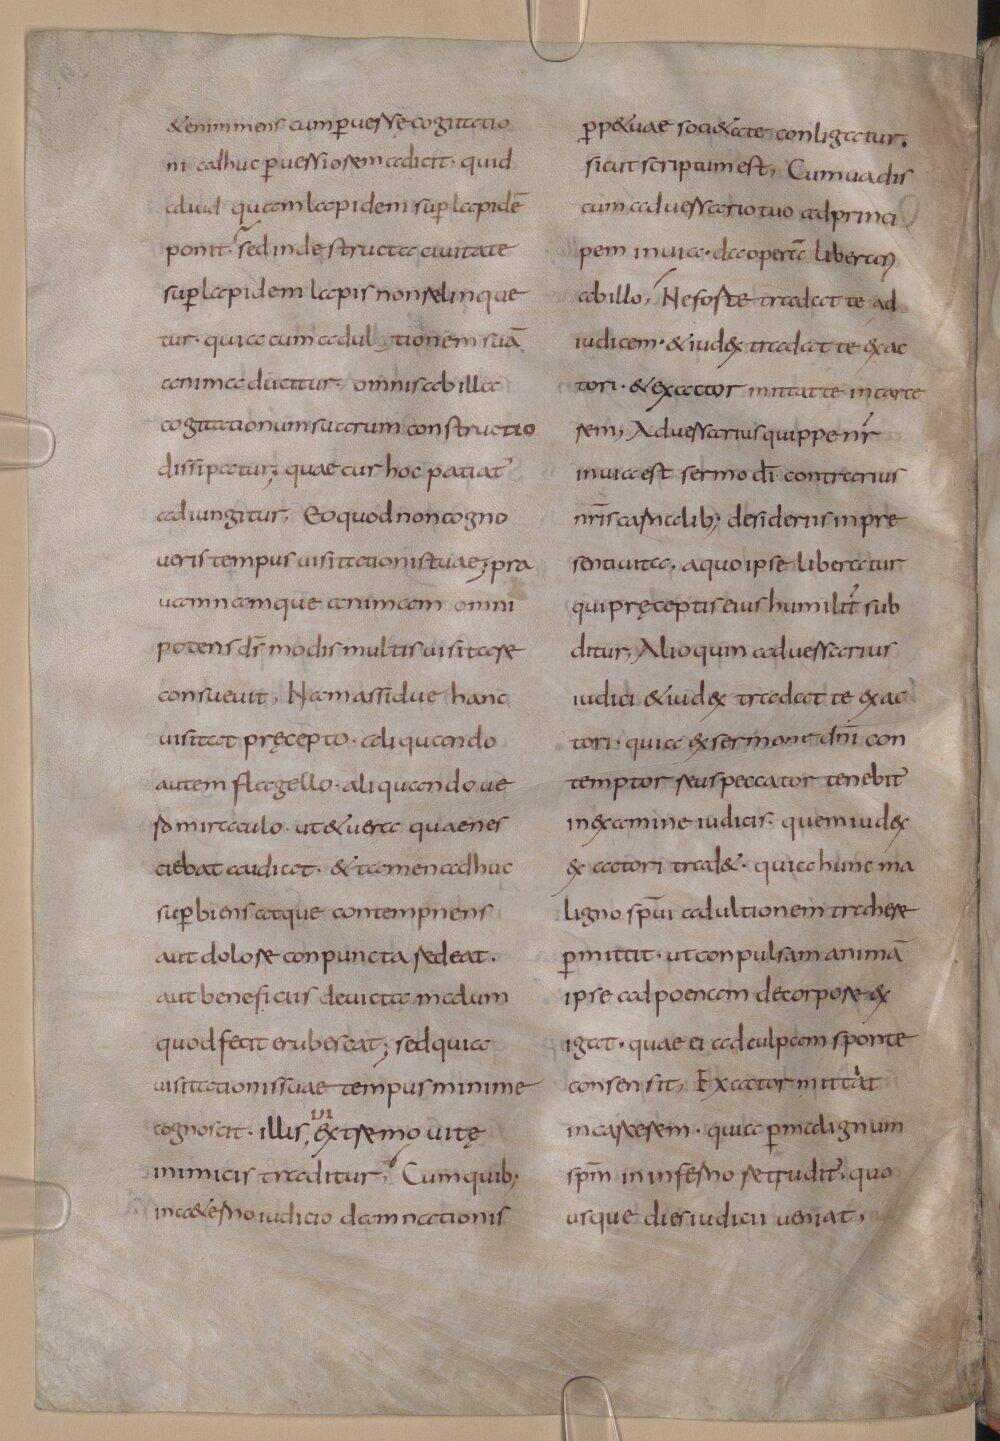 &enim mens cum puersę cogitatio
ni adhuc puersiorem adicit· quid
aliud quam lapidem sup lapidē
ponit· sed in destructa ciuitate
sup lapidem lapis non relinque
tur· quia cum ad ultionem suā
anima ducitur· omnis ab illa
cogitationum suarum constructio
dissipatur; quae cur hoc patiat
adiungitur, Eo quod non cogno
ueris tempus uisitationis tuae; pra
uam namque animam omni
potens dš modis multis uisitare
consueuit, Nam assidue hanc
uisitat pręcepto· aliquando
autem flagello· aliquando ue
ro miraculo· ut &uera quae nes
ciebat audiat· & tamen adhuc
supbiens atque contempnens
aut dolore conpuncta redeat·
aut beneficiis deuicta malum
quod fecit erubescat; sed quia
uisitationis suae tempus minime
cognoscit· illis, in extremo uitę
inimicis traditur, Cum quib;
in a&erno iudicio damnationis
pp&uae soci&ate conligatur.
sicut scriptum est, Cum uadis
cum aduersario tuo ad princi
pem in uia· da operā liberari
ab illo, Ne forte tradat te ad
iudicem· & iudex tradat te exac
tori· & exactor mittat te in carce
rem, Aduersarius quippe nr̄
in uia est sermo dī contrarius
nrīs carnalib; desideriis in pre
senti uita, a quo ipse liberatur
qui pręceptis eius humilit̄ sub
ditur, Alioquin aduersarius
iudici & iudex tradat te exac
tori· quia ex sermone dnī con
temptor reus peccator tenebit̄
in examine iudicis· quem iudex
exactori trad&· quia hunc ma
ligno spūi ad ultionem trahere
pmittit· ut conpulsam animā
ipse ad poenam de corpore ex
igat· quae ei ad culpam sponte
consensit, Exactor mittàt
in carcerem· quia p malignum
spm̄ in inferno retrudit̄· quo
usque dies iudicii ueniat,